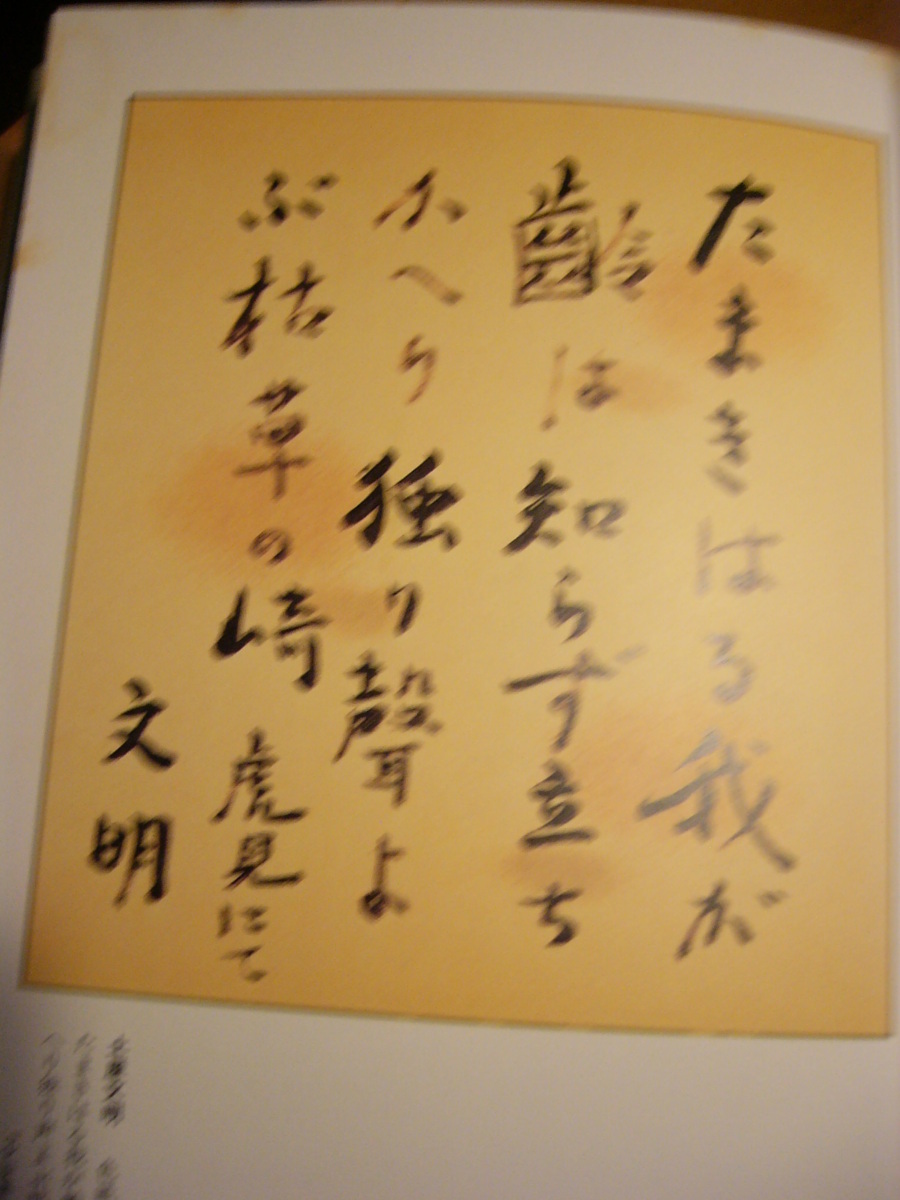 たまきはる我が
齡は知らず立ち
かへり独り聲よ
ぶ枯草の崎 虎見にて
文明